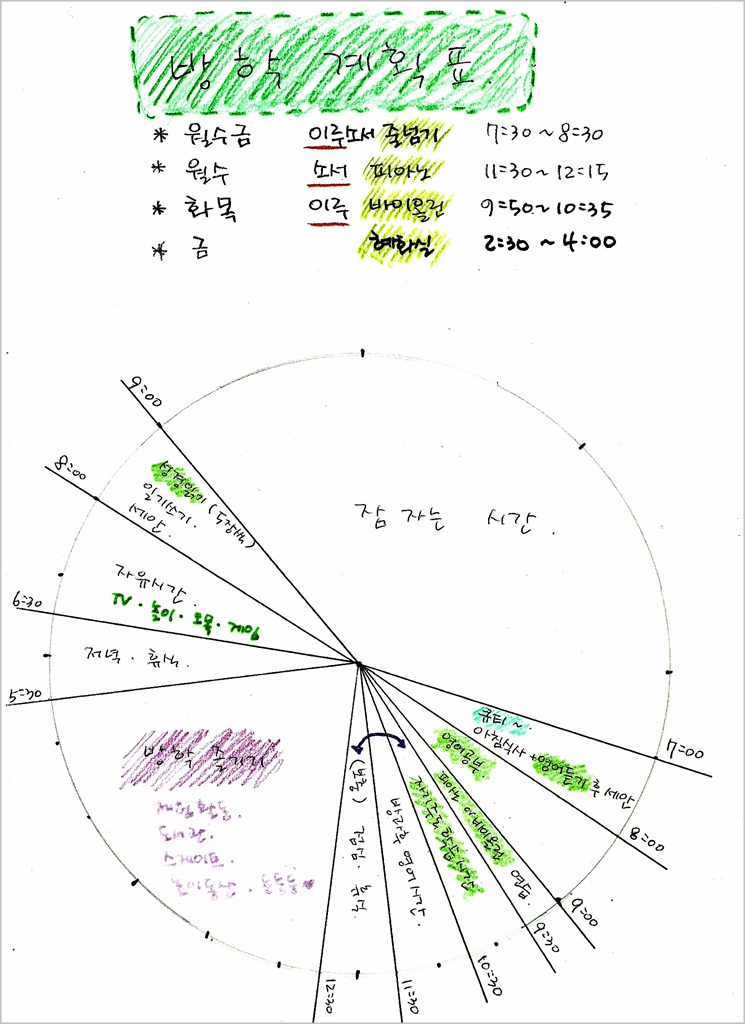 방학 계획표
* 월수금 이루오서 줄넘기 7:30 ~ 8:30
* 월수 오서 피아노 11:30 ~ 12:15
* 화목 이루 바이올린 9:50 ~ 10:35
* 금 혜화실 2:30 ~ 4:00
9:00
8:00
성경읽기 (5장씩)
일기쓰기.
세안.
잠 자는 시간.
자유시간.
TV. 놀이. 오목. 게임
6:30
저녁. 휴식.
5:30
큐티~
아침식사 + 영어듣기 후 세안
7:00
영어공부.
피아노 바이올린 연습.
자기주도 학습시간
8:00
방학 즐기기
(낮동) 점심. 휴식.
방과후 영어시간.
9:00
9:30
10:30
11:30
12:30